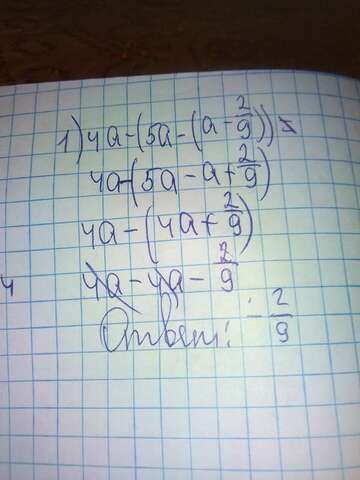 1) 4a-(5a-(a-2/9))=
4a-(5a-a+2/9)
4a-(4a+2/9)
4a-4a-2/9
Ответ: -2/9
ч